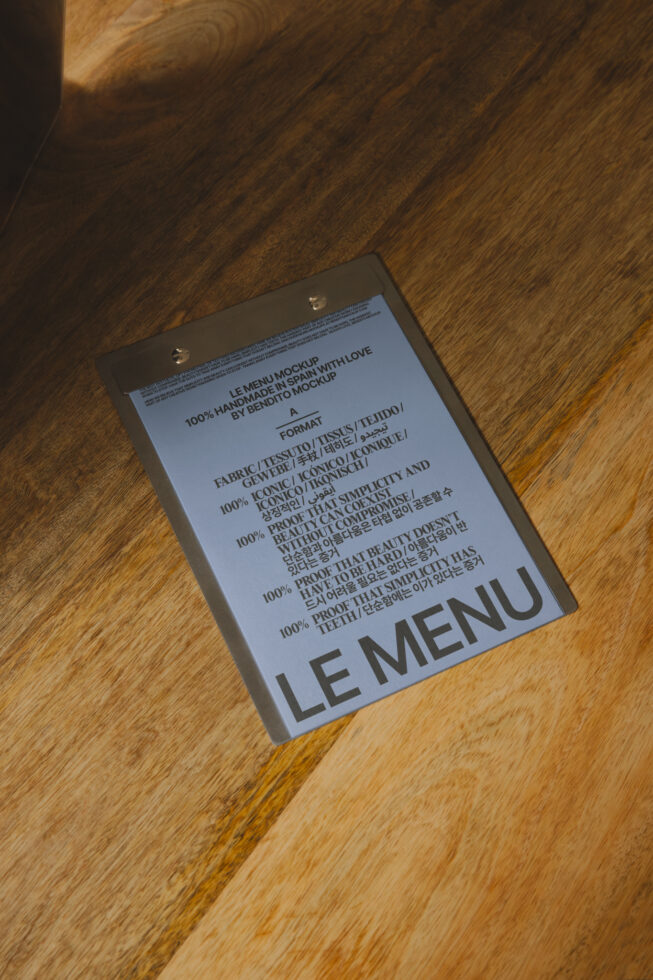 LE MENU MOCKUP
100% HANDMADE IN SPAIN WITH LOVE
BY BENDITO MOCKUP
A
FORMAT
FABRIC / TESSUTO / TISSUS / TEJIDO /
GEWEBE / 手杖 / 테히도 / تيجيدو
100% ICONIC / ICÓNICO / ICONIQUE /
ICONICO / IKONISCH /
상징적인 / أيقوني
100% PROOF THAT SIMPLICITY AND
BEAUTY CAN COEXIST
WITHOUT COMPROMISE /
단순함과 아름다움은 타협 없이 공존할 수
있다는 증거
100% PROOF THAT BEAUTY DOESN'T
HAVE TO BE HARD / 아름다움이 반
드시 어려울 필요는 없다는 증거
100% PROOF THAT SIMPLICITY HAS
TEETH / 단순함에는 이가 있다는 증거
LE MENU